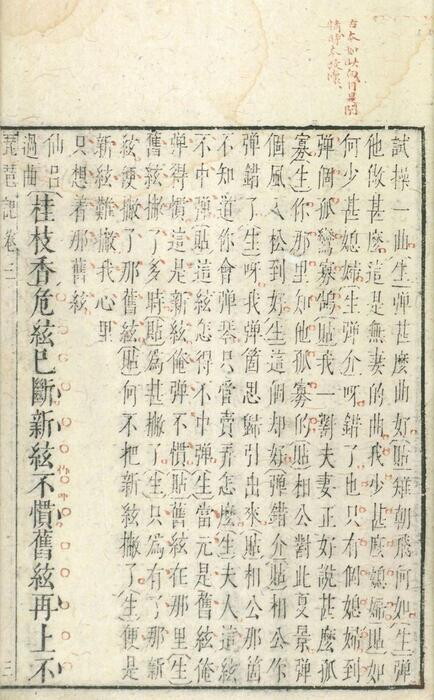 試操一曲生彈甚麽曲好貼雉朝飛何如生彈
他做甚麽這是無妻的曲我少甚麽媳婦貼如
何少甚媳婦生彈介呀錯了也只有個媳婦到
彈個孤鸞寡鵠貼我一對夫妻正好說甚麽孤
寡生你那里知他孤寡的貼相公對此夏景彈
個風入松到好生這個却好彈錯介貼相公你
彈錯了生呀我彈箇思歸引出來貼相公那箇
不知道你會彈琴只管賣弄怎麽生夫人這絃
不中彈貼這絃怎得不中彈生當元是舊絃俺
彈得慣這是新絃俺彈不慣貼舊絃在那里生
舊絃撇了多時貼爲甚撇了生只爲有了那新
絃便撇了那舊絃貼何不把新絃撇了生便是
新絃難撇我心里
只想着那舊絃
仙呂
過曲
桂枝香危絃已斷新絃不慣舊絃再上不
琵琶記卷三
三